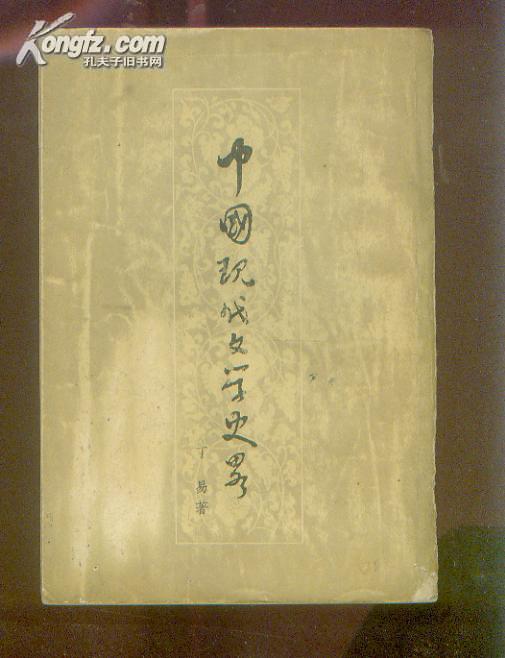 Kongfz.com
孔夫子旧书网
中國现代文学史畧
丁易著